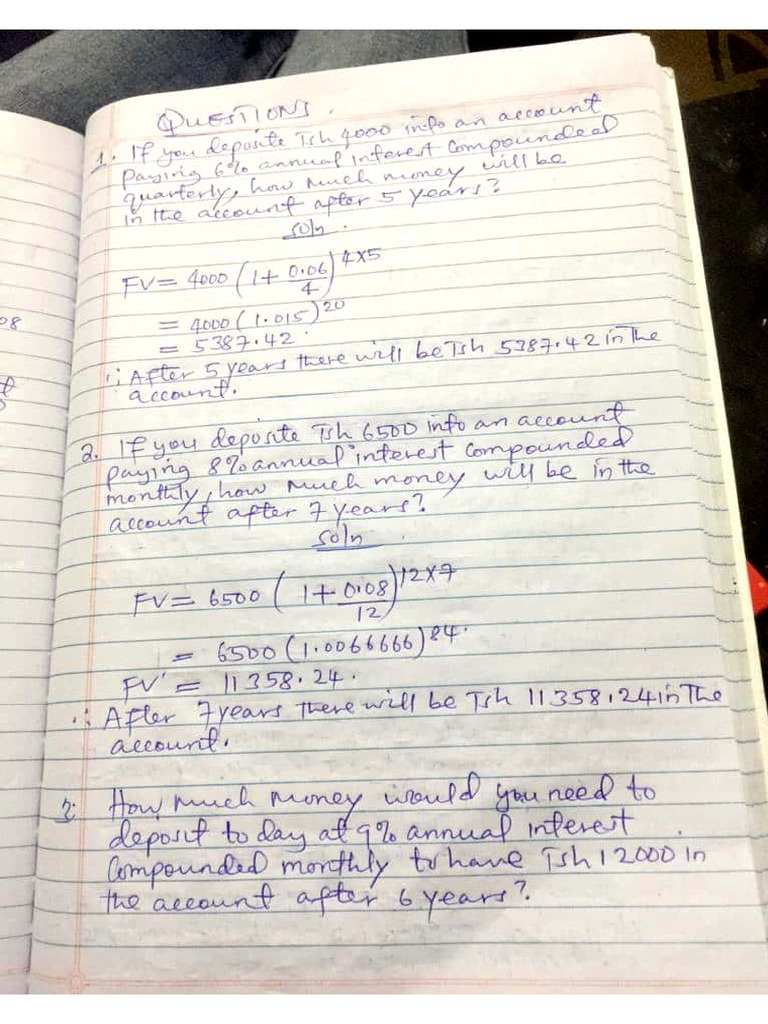 QUESTIONS.
1. If you deposite Tsh 4000 into an account
paying 6% annual interest compounded
quarterly, how much money will be
in the account after 5 years?
soln.
FV = 4000 (1 + 0.06/4)^4x5
= 4000 (1.015)^20
= 5387.42.
∴ After 5 years there will be Tsh 5387.42 in the
account.
2. If you deposite Tsh 6500 into an account
paying 8% annual interest compounded
monthly, how much money will be in the
account after 7 years?
soln
FV = 6500 (1 + 0.08/12)^12x7
= 6500 (1.0066666)^84.
FV = 11358.24.
∴ After 7 years there will be Tsh 11358.24 in the
account.
3. How much money would you need to
deposit to day at 9% annual interest
compounded monthly to have Tsh 12000 in
the account after 6 years?
08